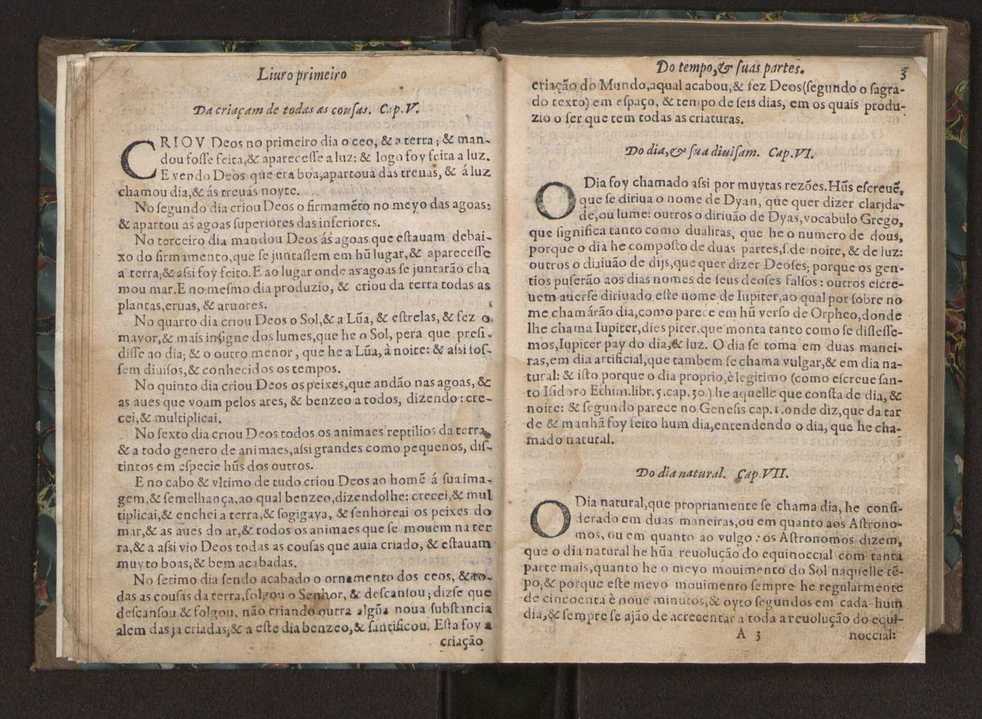 Liuro primeiro
Da criaçam de todas as cousas. Cap. V.
CRIOV Deos no primeiro dia o ceo, & a terra; & man-
dou fosse feita,& aparecesse a luz: & logo foy feita a luz.
E vendo Deos que era boa,apartou a das treuas, & á luz
chamou dia,& ás treuas noyte.
No segundo dia criou Deos o firmamẽto no meyo das agoas:
& apartou as agoas superiores das inferiores.
No terceiro dia mandou Deos ás agoas que estauam debai-
xo do firmamento,que se juntassem em hũ lugar,& aparecesse
a terra,& assi foy feito. E ao lugar onde as agoas se juntarão cha
mou mar. E no mesmo dia produzio, & criou da terra todas as
plantas,eruas, & aruores.
No quarto dia criou Deos o Sol,& a Lũa, & estrelas, & fez o
mayor, & mais insigne dos lumes,que he o Sol, pera que presi-
disse ao dia; & o outro menor, que he a Lũa, à noite: & assi fos-
sem diuisos, & conhecidos os tempos.
No quinto dia criou Deos os peixes,que andão nas agoas, &
as aues que voam pelos ares, & benzeo a todos, dizendo: cre-
cei,& multiplicai.
No sexto dia criou Deos todos os animaes reptilios da terra,
& a todo genero de animaes,assi grandes como pequenos, dis-
tintos em especie hũs dos outros.
E no cabo & vltimo de tudo criou Deos ao homẽ á sua ima-
gem,& semelhança,ao qual benzeo,dizendolhe: crecei,& mul
tiplicai,& enchei a terra,& sogigaya, & senhoreai os peixes do
mar,& as aues do ar,& todos os animaes que se mouem na ter
ra,& a assi vio Deos todas as cousas que auia criado, & estauam
muyto boas,& bem acabadas.
No setimo dia sendo acabado o ornamento dos ceos, & to-
das as cousas da terra,solgou o Senhor, & descansou; dizse que
descansou & folgou, não criando outra algũa noua substancia
alem das ja criadas;& a este dia benzeo,& santificou. Esta foy a
criação
Do tempo,& suas partes. 3
criação do Mundo,a qual acabou,& fez Deos(segundo o sagra-
do texto) em espaço, & tempo de seis dias, em os quais produ-
zio o ser que tem todas as criaturas.
Do dia,& sua diuisam. Cap. VI.
O Dia foy chamado assi por muytas rezões. Hũs escreuẽ,
que se diriua o nome de Dyan, que quer dizer clarida-
de,ou lume: outros o diriuão de Dyas,vocabulo Grego,
que significa tanto como dualitas, que he o numero de dous,
porque o dia he composto de duas partes,s. de noite, & de luz:
outros o diriuão de dijs,que quer dizer Deoses; porque os gen-
tios puserão aos dias nomes de seus deoses falsos: outros escre-
uem auerse diriuado este nome de Iupiter,ao qual por sobre no
me chamárão dia,como parece em hũ verso de Orpheo,donde
lhe chama Iupiter,dies piter.que monta tanto como se dissesse-
mos,Iupiter pay do dia,& luz. O dia se toma em duas manei-
ras,em dia artificial,que tambem se chama vulgar,& em dia na-
tural: & isto porque o dia proprio,è legitimo (como escreue san-
to Isidoro Ethim.libr.5.cap.30.) he aquelle que consta de dia, &
noite: & segundo parece no Genesis cap.1.onde diz,que da tar
de & manhã foy feito hum dia,entendendo o dia, que he cha-
mado natural.
Do dia natural. Cap. VII.
O Dia natural,que propriamente se chama dia, he consi-
derado em duas maneiras,ou em quanto aos Astrono-
mos, ou em quanto ao vulgo: os Astronomos dizem,
que o dia natural he hũa reuolução do equinoccial com tanta
parte mais,quanto he o meyo mouimento do Sol naquelle tẽ-
po,& porque este meyo mouimento sempre he regularmente
de cincoenta è noue minutos,& oyto segundos em cada hum
dia,& sempre se ajão de acrecentar a toda a reuolução do equi-
A 3 noccial: